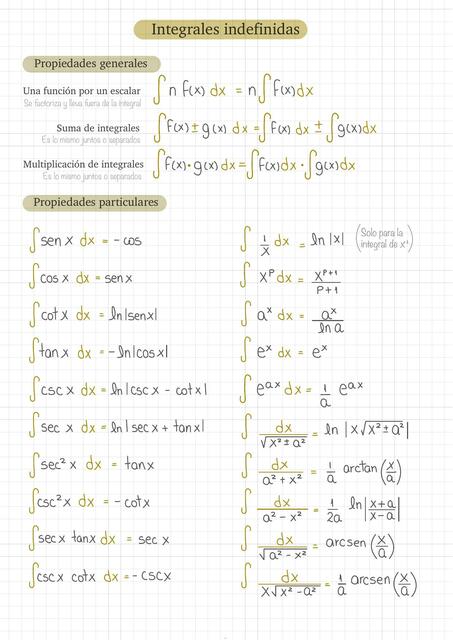 Integrales indefinidas
Propiedades generales
Una función por un escalar ∫ n f(x) dx = n ∫ f(x) dx
Se factoriza y lleva fuera de la integral
Suma de integrales ∫ f(x) ± g(x) dx = ∫ f(x) dx ± ∫ g(x) dx
Es lo mismo juntos o separados
Multiplicación de integrales ∫ f(x) · g(x) dx = ∫ f(x) dx · ∫ g(x) dx
Es lo mismo juntos o separados
Propiedades particulares
∫ sen x dx = - cos
∫ cos x dx = sen x
∫ cot x dx = ln|sen x|
∫ tan x dx = - ln|cos x|
∫ csc x dx = ln|csc x - cot x|
∫ sec x dx = ln|sec x + tan x|
∫ sec² x dx = tan x
∫ csc² x dx = - cot x
∫ sec x tan x dx = sec x
∫ csc x cotx dx = - csc x
∫ 1/x dx = ln|x| (Solo para la
integral de x¹)
∫ x^p dx = x^(p+1)/(p+1)
∫ a^x dx = a^x/ln a
∫ e^x dx = e^x
∫ e^(ax) dx = 1/a e^(ax)
∫ dx/√(x² ± a²) = ln |x√(x² ± a²)|
∫ dx/(a² + x²) = 1/a arctan (x/a)
∫ dx/(a² - x²) = 1/2a ln|(x+a)/(x-a)|
∫ dx/√(a² - x²) = arcsen (x/a)
∫ dx/(x√(x² - a²)) = 1/a arcsen (x/a)